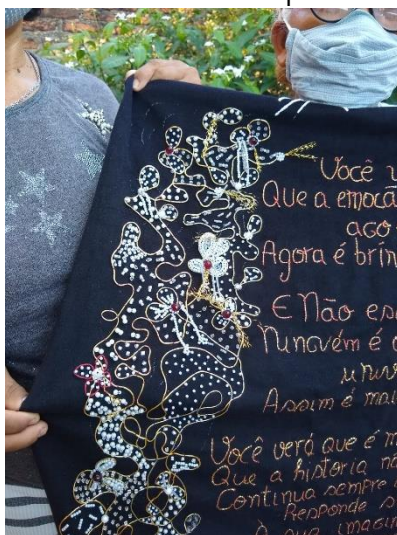 Você v
Que a emoçã
ago
Agora é brin
E Não es
Ninguém é o
univ
Assim é mai
Você verá que é m
Que a historia nã
Continua sempre
Responde s
à sua imagin